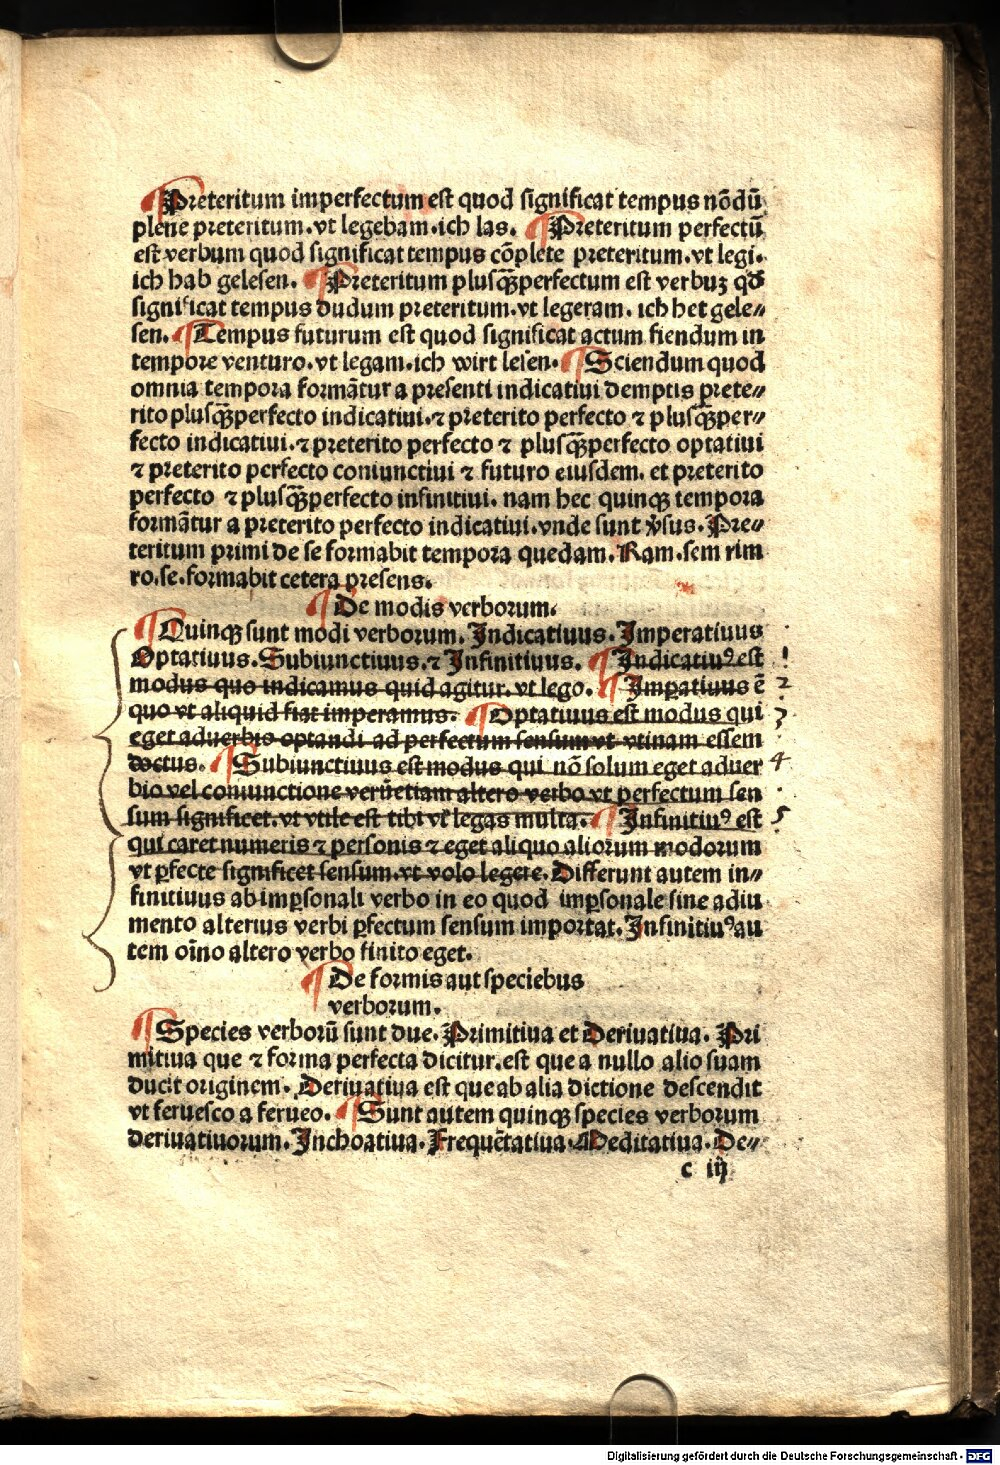 ¶ Preteritum imperfectum est quod significat tempus nōdū
plene preteritum. vt legebam. ich las. ¶ Preteritum perfectū
est verbum quod significat tempus cōplete preteritum. vt legi.
ich hab gelesen. ¶ Preteritum plusq̃perfectum est verbuʒ qd̃
significat tempus dudum preteritum. vt legeram. ich het gele⸗
sen. ¶ Tempus futurum est quod significat actum fiendum in
tempore venturo. vt legam. ich wirt lesen. ¶ Sciendum quod
omnia tempora formãtur a presenti indicatiui demptis prete⸗
rito plusq̃perfecto indicatiui. ⁊ preterito perfecto ⁊ plusq̃per⸗
fecto indicatiui. ⁊ preterito perfecto ⁊ plusq̃perfecto optatiui
⁊ preterito perfecto coniunctiui ⁊ futuro eiusdem. et preterito
perfecto ⁊ plusq̃perfecto infinitiui. nam hec quinqꝫ tempora
formãtur a preterito perfecto indicatiui. vnde sunt ṽsus. Pre⸗
teritum primi de se formabit tempora quedam. Ram. sem rim
ro. se. formabit cetera presens.
¶ De modis verborum.
¶ Quinqꝫ sunt modi verborum. Indicatiuus. Imperatiuus
Optatiuus. Subiunctiuus. ⁊ Infinitiuus. ¶ Indicatiuꝰ est 1
modus quo indicamus quid agitur. vt lego. ¶ Imꝑatiuus ē 2
quo vt aliquid fiat imperamus. ¶ Optatiuus est modus qui 3
eget aduerbio optandi ad perfectum sensum vt vtinam essem
doctus. ¶ Subiunctiuus est modus qui nō solum eget aduer 4
bio vel coniunctione verūetiam altero verbo vt perfectum sen
sum significet. vt vtile est tibi vt legas multa. ¶ Infinitiuꝰ est 5
qui caret numeris ⁊ personis ⁊ eget aliquo aliorum modorum
vt ꝑfecte significet sensum. vt volo legere. Differunt autem in⸗
finitiuus ab imꝑsonali verbo in eo quod imꝑsonale sine adiu
mento alterius verbi ꝑfectum sensum importat. Infinitiuꝰ au
tem oīno altero verbo finito eget.
¶ De formis aut speciebus
verborum.
¶ Species verborū sunt due. Primitiua et Deriuatiua. Pri
mitiua que ⁊ forma perfecta dicitur. est que a nullo alio suam
ducit originem. Deriuatiua est que ab alia dictione descendit
vt feruesco a ferueo. ¶ Sunt autem quinqꝫ species verborum
deriuatiuorum. Inchoatiua. Frequētatiua. Meditatiua. De⸗
c iij
Digitalisierung gefördert durch die Deutsche Forschungsgemeinschaft - DFG